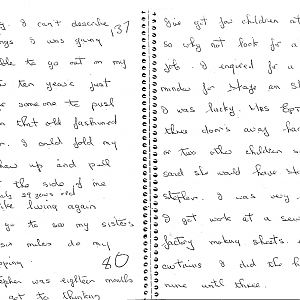 I can't describe
137
ngs I was going
ble to go out on my
ten years just
r someone to push
that old fashioned
I could fold my
up and pull
the side of me
29 years old
ke living again
go to see my sisters
six miles do my
pping.
80
epher was eighteen months
got to thinking
I've got few children at
so why not look for a
job. I enquired for a
minder for Stage an St
I was lucky. Mrs
three doors away. had
or two other children s
said she would have St
Stephen. I was very
I got work at a sew
factory making sheets.
curtains I did the h
name until three.